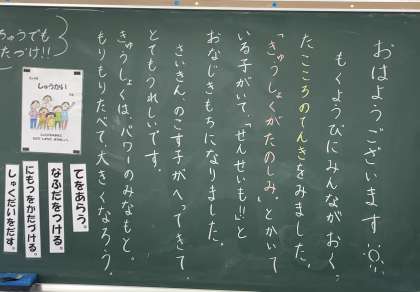 おはようございます
もくようびにみんながおく
た「こころのてんき」をみました。
「きゅうしょくがたのしみ」とかいて
いる子がいて、「せんせいも!!」と
おなじきもちになりました。
さいきん、のこす子がへってきて、
とてもうれしいです。
きゅうしょくは、パワーのみなもと。
もりもりたべて、大きくなろう。
ゅうでも
たづけ!!
しゅうかい
てをあらう。
なふだをつける。
にもつをかたづける。
しゅくだいをだす。